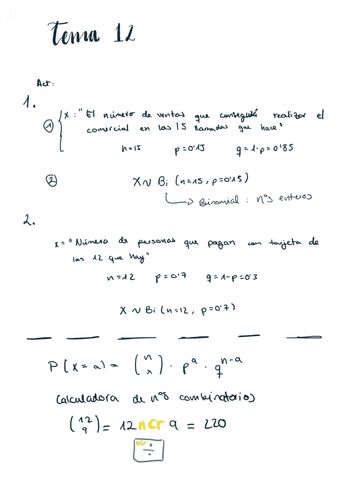 Tema 12
Act:
1.
① X: "El número de ventas que conseguirá realizar el
comercial en las 15 llamadas que hace"
n=15 p=0'15 q=1-p=0'85
② X∼ Bi (n=15, p=0'15)
Binomial: nºs enteros
2.
X= "Número de personas que pagan con tarjeta de
las 12 que hay"
n=12 p=0'7 q=1-p=0'3
X ∼ Bi (n=12, p=0'7)
P(x=a) = (n x) · p^a · q^n-a
Calculadora de nºs combinatorios
(12 9) = 12 nCr 9 = 220
nCr
÷